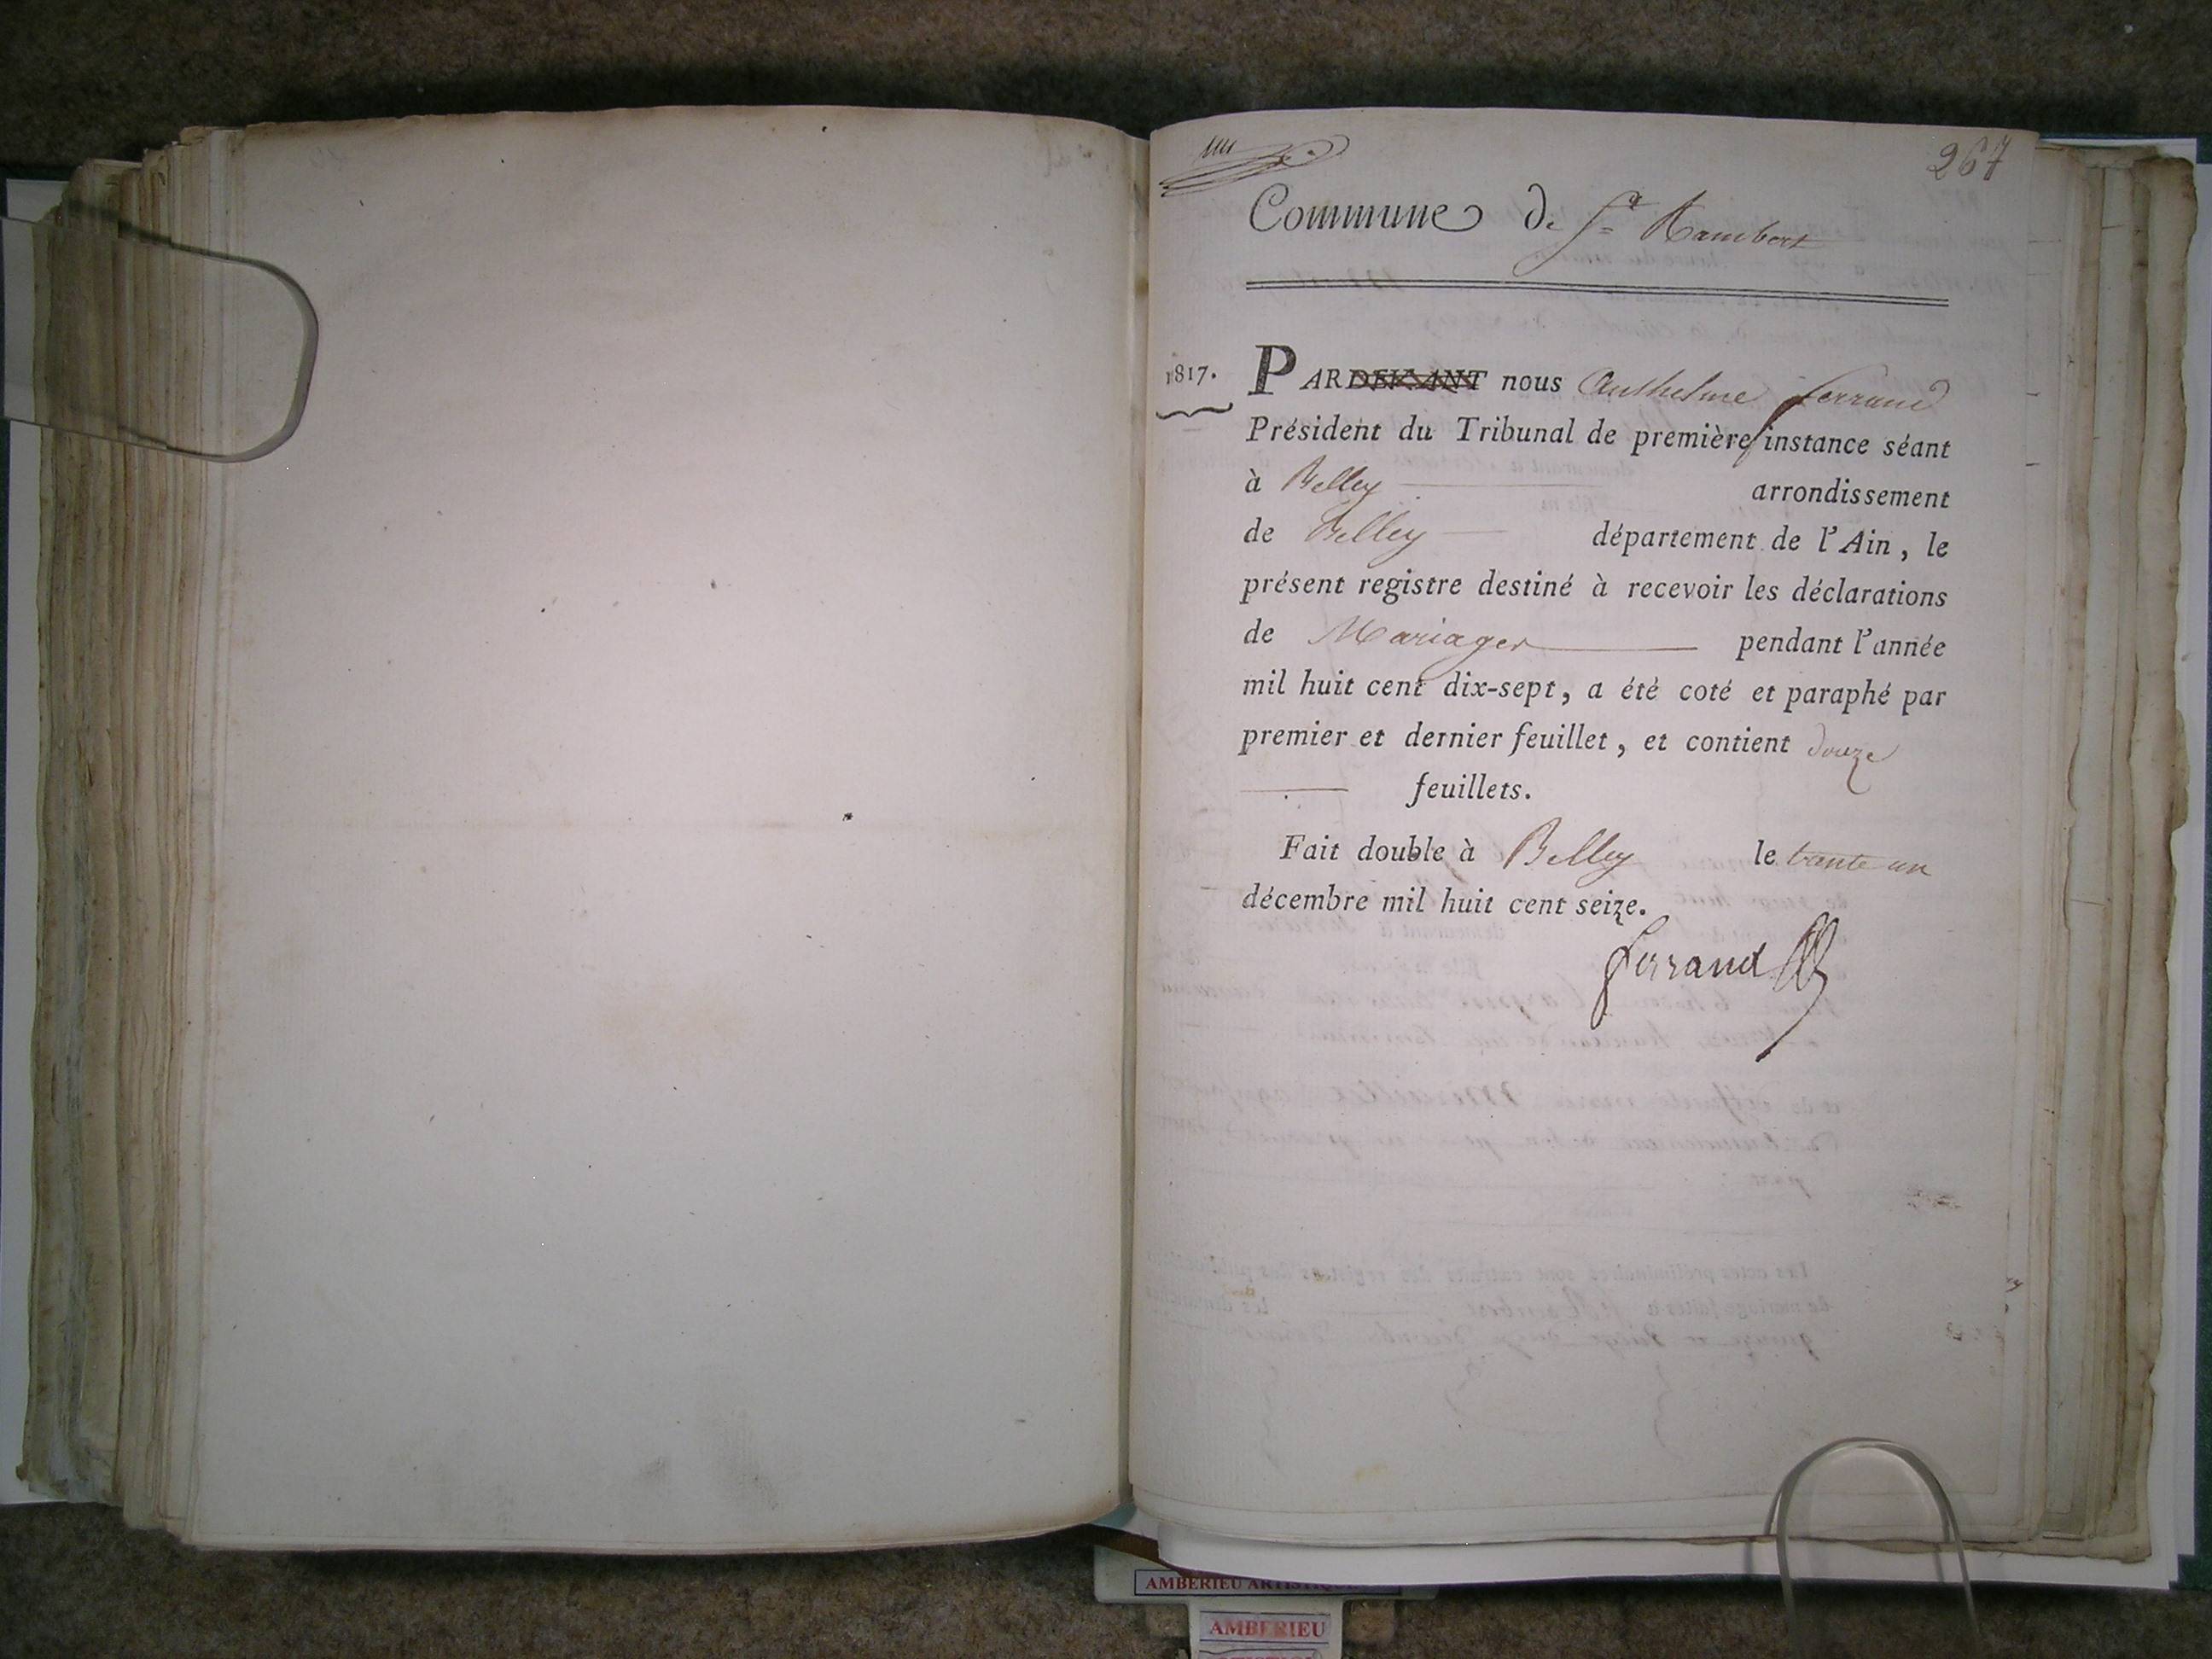 267
Commune de St Rambert
1817.
PARDEVANT nous Anthelme ferrand
Président du Tribunal de première instance séant
à Belley arrondissement
de Belley département de l'Ain, le
présent registre destiné à recevoir les déclarations
de Mariages pendant l'année
mil huit cent dix-sept, a été coté et paraphé par
premier et dernier feuillet, et contient douze
feuillets.
Fait double à Belley le trante un
décembre mil huit cent seize.
ferrand
AMBERIEU ARTISTIQUE
AMBERIEU